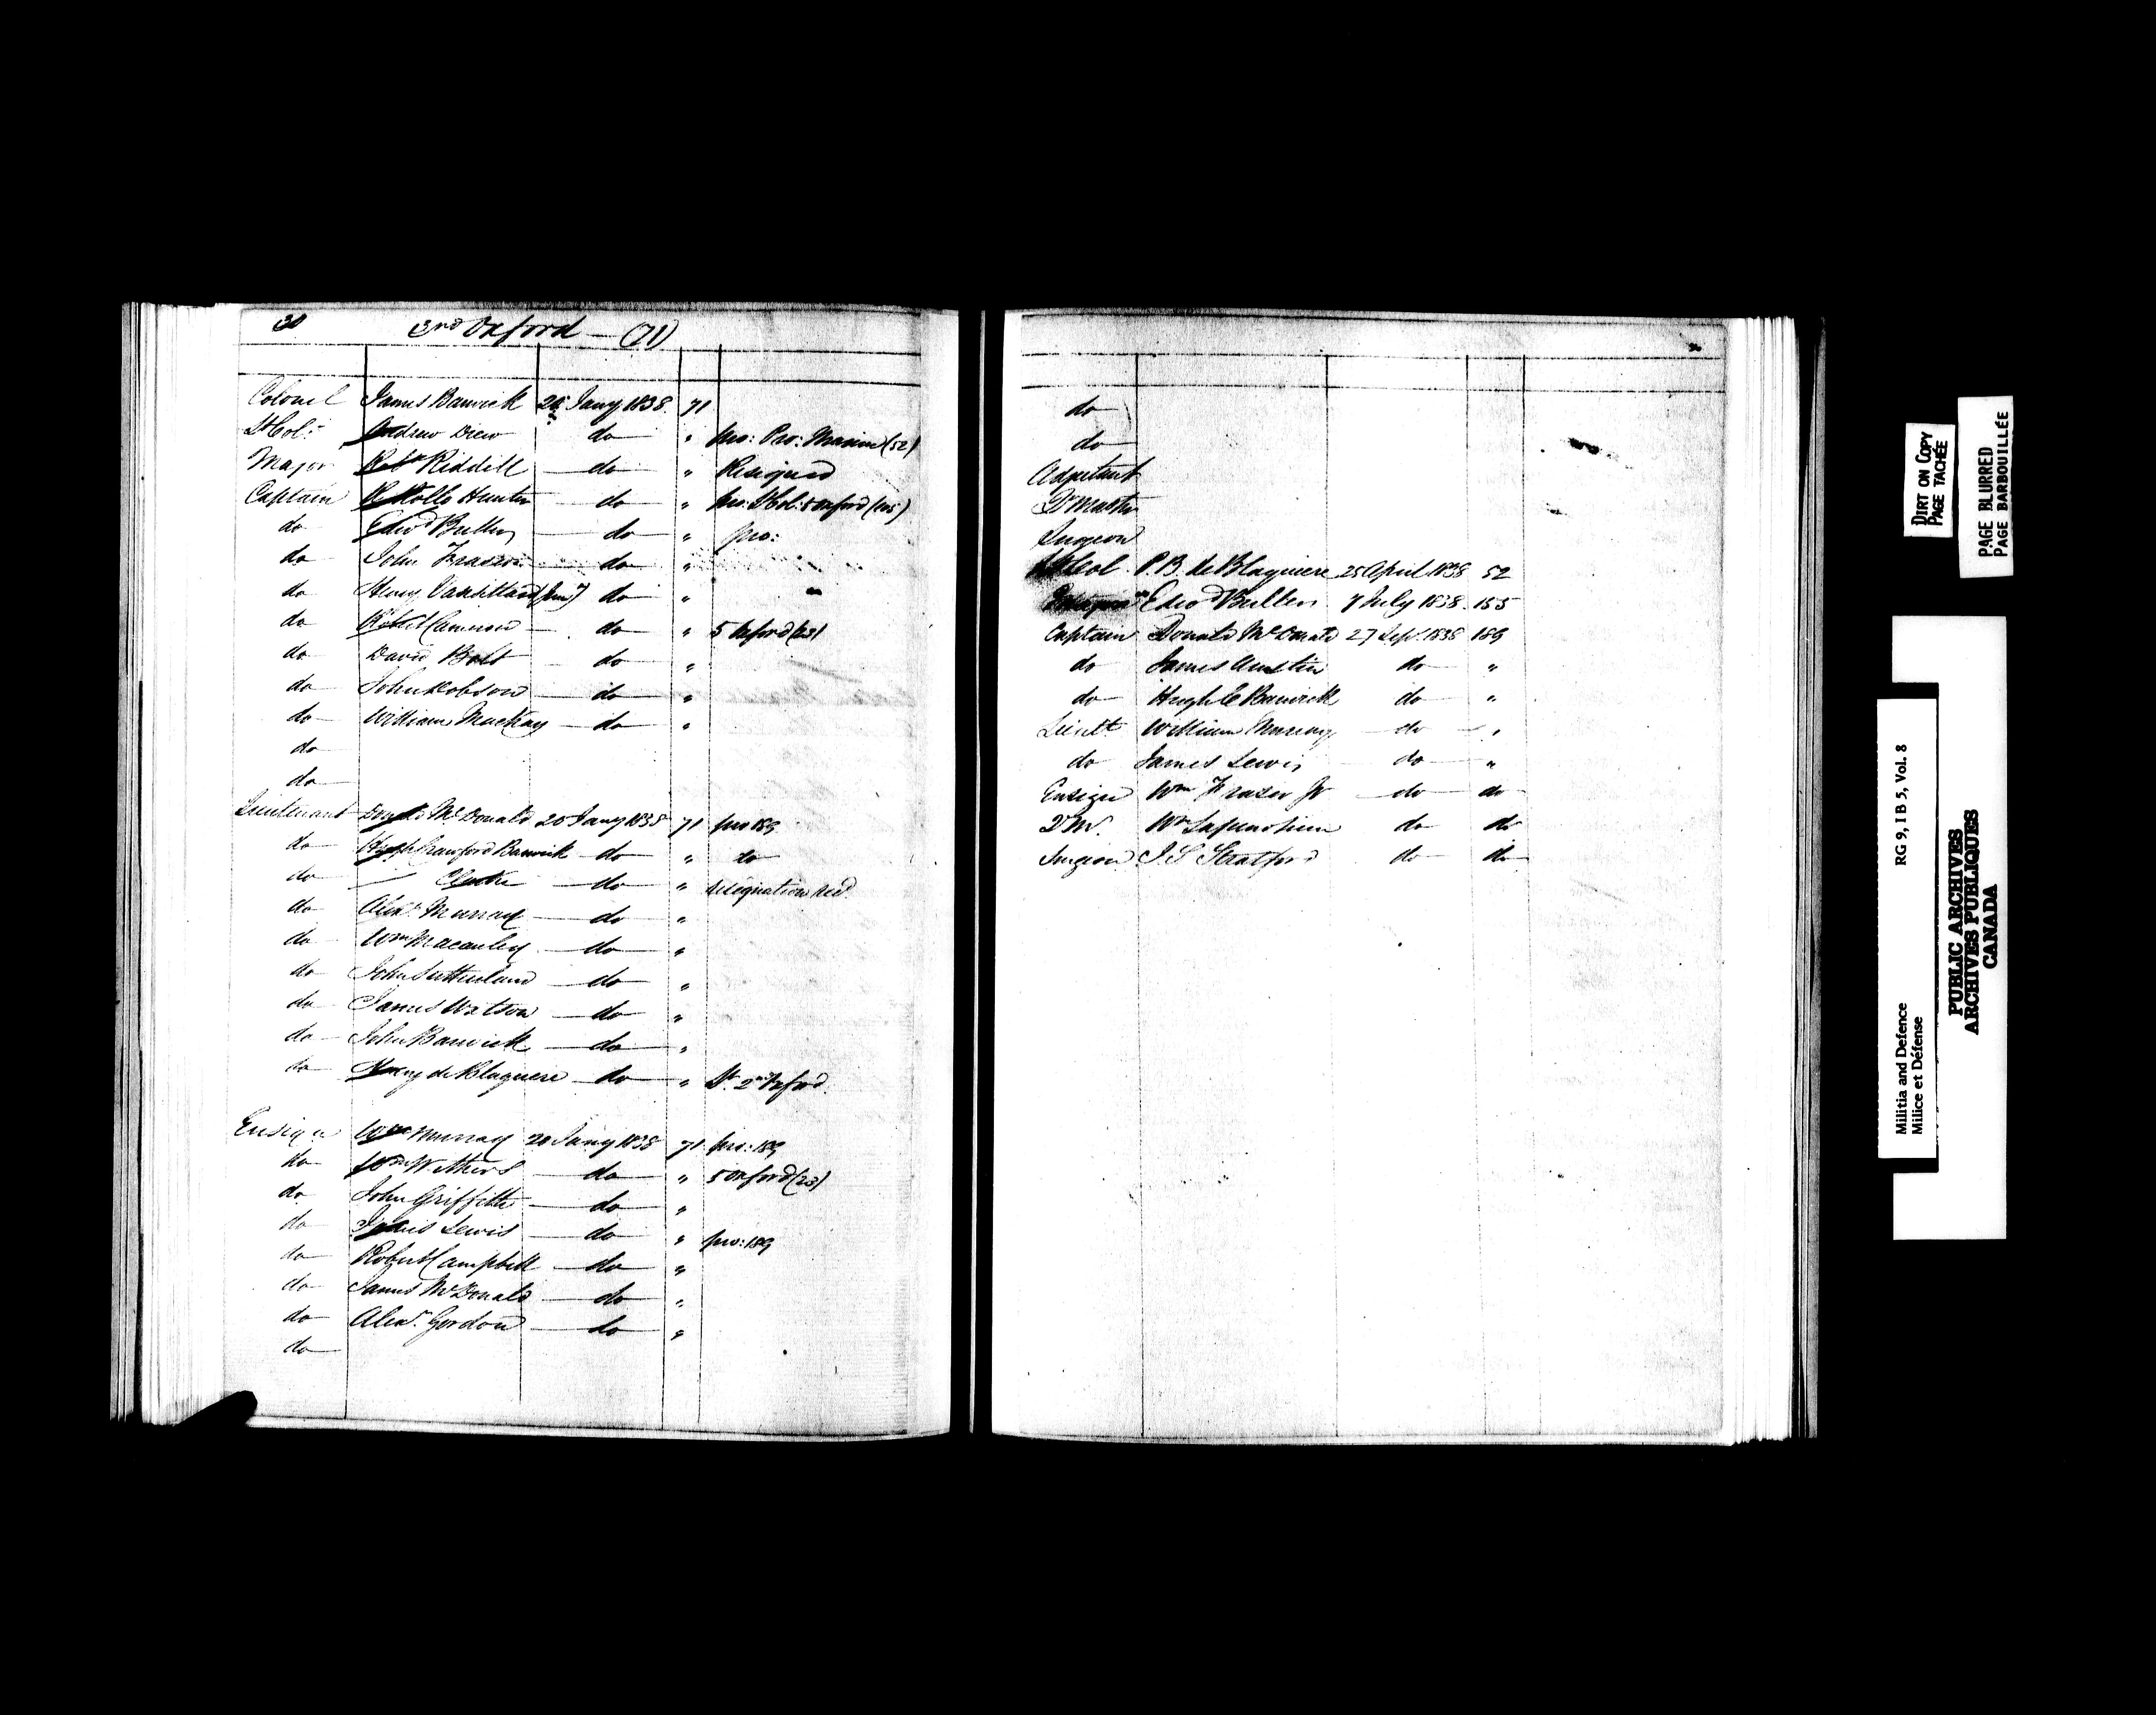 30 3rd Oxford — (71)
Colonel James Barwick 20 Jany 1838 71
Lt Col: Andrew Drew do " pro: Pro: Marine (52)
Major Robt Riddell do " Resigned
Captain Rollo Hunter do " pro: Lt Col: 5 Oxford (105)
do Edwd Bullen do " pro:
do John Fraser do "
do Henry Vansittart (junr) do "
do Robert Cameron do " 5 Oxford (23)
do David Bolt do "
do John Hobson do "
do William Mackay do "
do
do
Lieutenant Donald McDonald 20 Jany 1838 71 pro 189
do Hugh Crawford Barwick do " do
do — do " resignation recd.
do Alexr Murray do "
do Wm Macauley do "
do John Sutherland do "
do James Watson do "
do John Barwick do "
do Henry de Blaquere do " Lt 2nd Oxford.
Ensign Wm Murray 20 Jany 1838 71 pro: 189
do Wm Withers do " 5 Oxford (23)
do John Griffiths do "
do James Lewis do " pro: 189
do Robert Campbell do "
do James McDonald do "
do Alexr. Gordon do "
do
do
do
Adjutant
Qr Master
Surgeon
Lt Col P.B. de Blaquiere 25 April 1838 52
Major Edwd Bullen 7 July 1838 155
Captain Donald McDonald 27 Sepr. 1838 189
do James Austin do "
do Hugh C Barwick do "
Lieutt William Murray do "
do James Lewis do "
Ensign Wm Fraser Jr do do
Q M. Wm do do
Surgeon J S Stratford do do
DIRT ON COPY
PAGE TACHÉE
PAGE BLURRED
PAGE BARBOUILLÉE
RG 9, I B 5, Vol. 8
Militia and Defence
Milice et Défense
PUBLIC ARCHIVES
ARCHIVES PUBLIQUES
CANADA